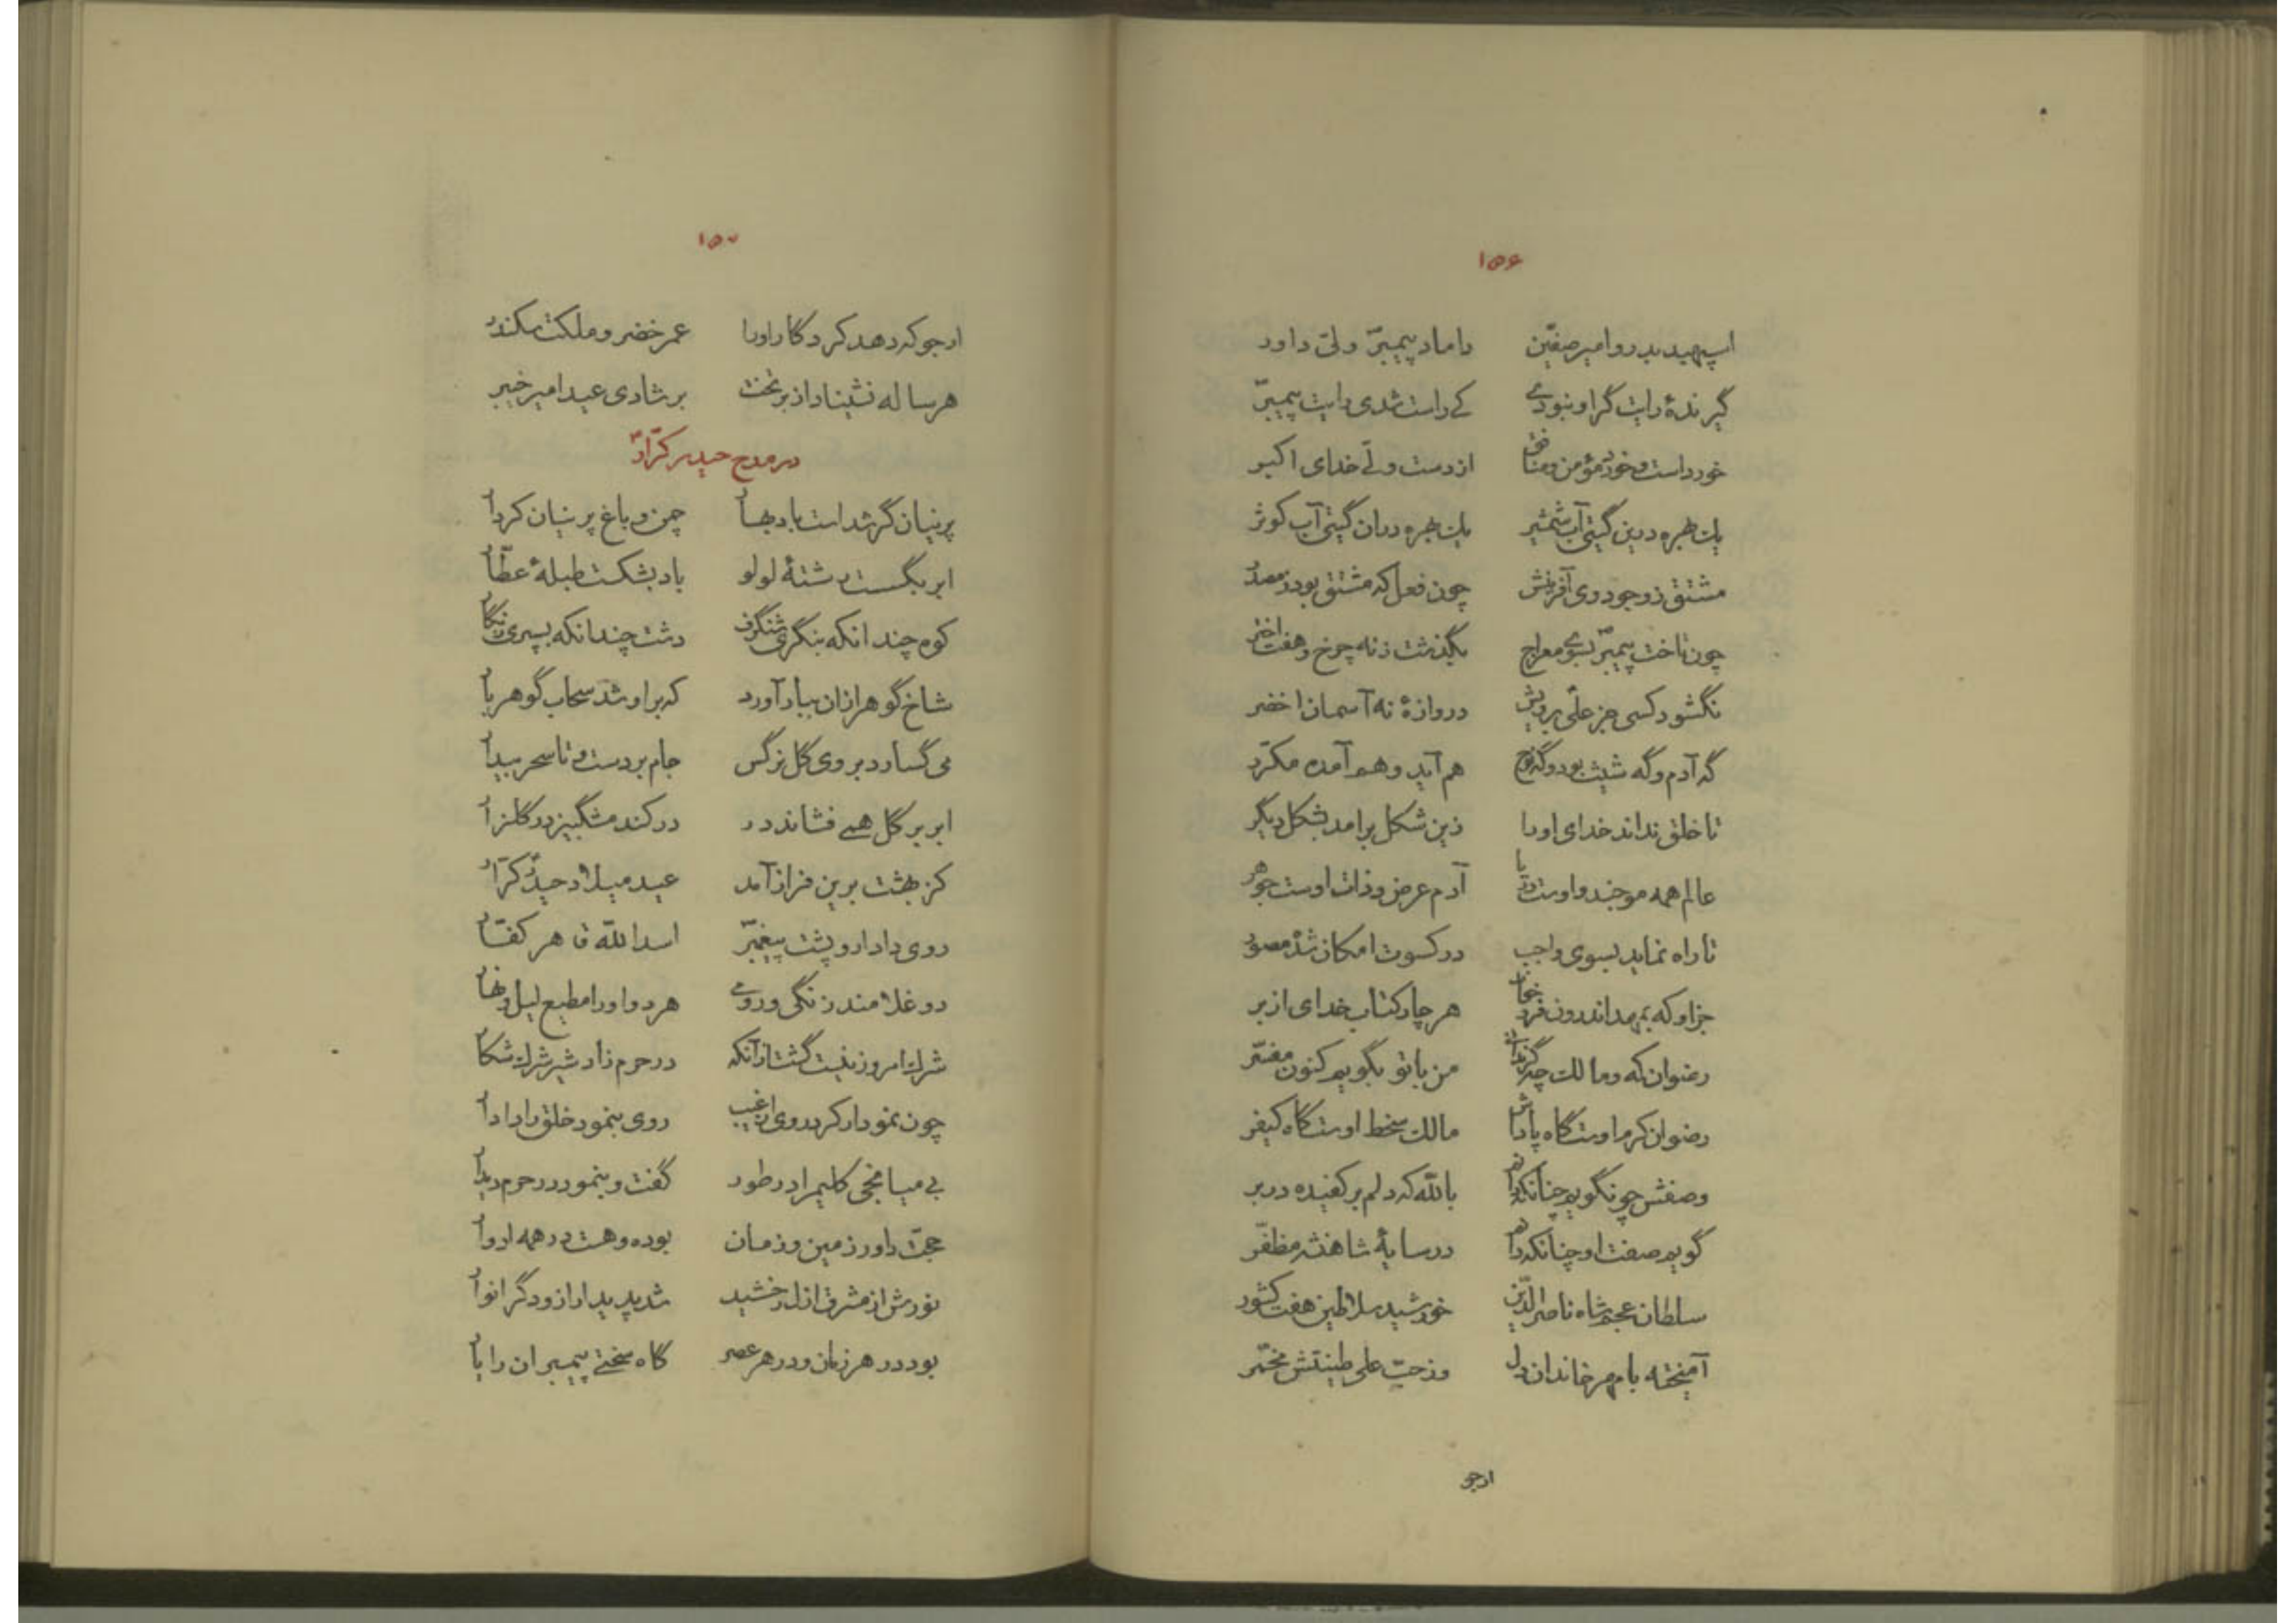 ۱۵۶
اسپهبد بدر و امیر صفّین داماد پیمبرؐ و ولیّ داور
گیرندهٔ رایت گر او نبودے کے راست شدی رایت پیمبرؐ
خورداست و خورد مؤمن و منافق از دست ولّے خدای اکبر
یك بهره درین گیتی آب شمشیر یك بهره دران گیتی آب کوثر
مشتق ز وجود وی آفرینش چون فعل که مشتق بود ز مصدر
چون تاخت پیمبرؐ بسوے معراج بگذشت ز نه چرخ و هفت اختر
نگشود کسی جز علّی برویش دروازهٔ نه آسمان اخضر
گه آدم و گه شیث بود و گه نوح هم آید و هم آمده مکرّر
تا خلق نداند خدای او را زین شکل برامد بشکل دیگر
عالم همه موجند و اوست دریا آدم عرض و ذات اوست جوهر
تا راه نماید بسوی واجب در کسوت امکان شده مصور
جز او که بمهد اندرون فرو خواند هر چار کتاب خدای از بر
رضوان که و مالك چه گر ندانے من با تو بگویم کنون مفسّر
رضوان کرم اوست گاه پاداش مالك سخط اوست گاه کیفر
وصفش چو نگویم چنانکه دانم بالله که دلم بر کفیده در بر
گویم صفت او چنانکه دانم در سایهٔ شاهنشه مظفّر
سلطان عجم شاه ناصر الدّین خورشید سلاطین هفت کشور
آمیخته با مهر خاندان دل وز حبّ علی طینتش مخمّر
ارجو
۱۵۷
ارجو که دهد کردگار او را عمر خضر و ملکت سکندر
هر ساله نشیناد از بر تخت بر شادی عید امیر خیبر
در مدح حیدر کرّارؑ
پرنیان گر شد است باد بهار چمن و باغ پرنیان کردار
ابر بگسست رشتهٔ لولو باد بشکست طبلهٔ عطّار
کوه چندانکه بنگری شنگرف دشت چندانکه بسپری زنگار
شاخ گوهر ازان ببار آورد که بر او شد سحاب گوهر بار
می گسارد بروی گل نرگس جام بر دست و تا سحر بیدار
ابر بر گل همے فشاند در در کند مشگبیز در گلزار
کز بهشت برین فراز آمد عید میلاد حیدر کرّار
روی دادار و پشت پیغمبرؐ اسد الله قاهر کفّار
دو غلامند زنگی و رومے هر دو او را مطیع لیل و نهار
شرك امروز نیست گشت ازآنکه در حرم زاد شیر شرك شکار
چون نمودار کرد روی از غیب روی بنمود خلق را دادار
بے میانجی کلیم را در طور گفت و بنمود در حرم دیدار
حجّت داور زمین و زمان بوده و هست در همه ادوار
نورش از مشرق ازل رخشید شد پدیدار ازو دگر انوار
بود در هر زمان و در هر عصر گاه سختے پیمبران را یار